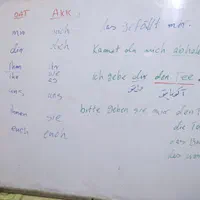 DAT AKK:
mir mich
dir dich
ihm ihn
ihr sie
es
uns, uns
Ihnen sie
euch euch
das gefällt mir.
kannst du mich abhole
ich gebe dir den Tee
bitte geben sie mir den
die
das